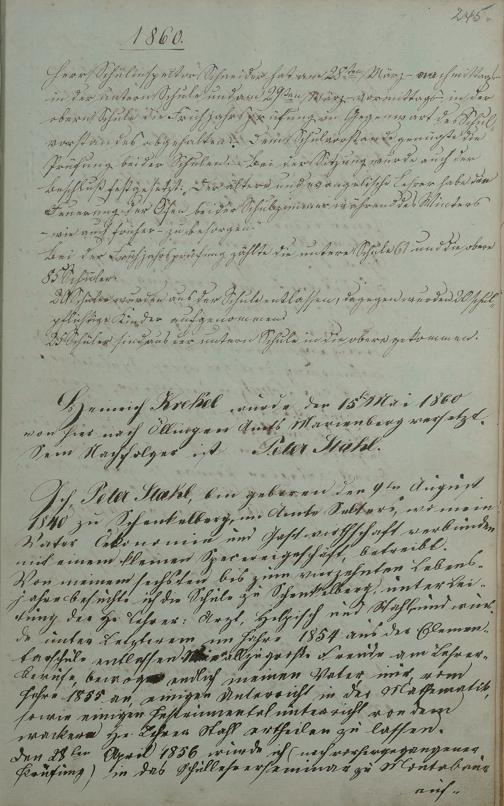 245.
1860.
Herr Schulinspector Schneider hat am 28ten März nachmittags
in der untern Schule und am 29ten März vormittags in der
obern Schule die Frühjahrsprüfung in Gegenwart des Schul
vorstandes abgehalten. Dem Schulvorstand genügte die
Prüfung beider Schulen. Bei der Sitzung wurde auch der
Beschluß festgesetzt. Der ältere und evangelische Lehrer habe die
Feuerung der Öfen beider Schulzimmer während des Winters
- wie auch früher - zu besorgen.
Bei der Frühjahrsprüfung zählte die untere Schule 61 und die obere
85 Schüler.
Schüler wurden aus der Schule entlassen, dagegen wurden 20 schul-
pflichtige Kinder aufgenommen.
25 Schüler sind aus der untern Schule in die obere gekommen.
Heinrich Krekel wurde den 15t Mai 1860
von hier nach Öllingen Amts Marienberg versetzt.
Sein Nachfolger ist Peter Stahl.
Ich, Peter Stahl, bin geboren den 9ten August
1840 zu Schenkelberg, im Amte Selters, wo mein
Vater Oekonomie und Gastwirthschaft verbunden
mit einem kleinen Specereigeschäft betreibt.
Von meinem sechsten bis zum vierzehnten Lebens-
jahre besuchte ich die Schule zu Schenkelberg, unter Lei-
tung der He Lehrer: Arzt, Helpisch und Stahl und wur-
de unter Letzterem im Jahre 1854 aus der Elemen-
tarschule entlassen. allzugroße Freude am Lehrer-
berufe, bewog endlich meinen Vater mir, vom
Jahre 1855 an, einigen Unterricht in der Mathematik,
sowie einigen Instrumentalunterricht von dem
wackern He Lehrer Stahl ertheilen zu lassen.
Den 28ten April 1856 wurde ich (nach vorhergegangener
Prüfung) in das Schullehrerseminar zu Montabaur
auf-